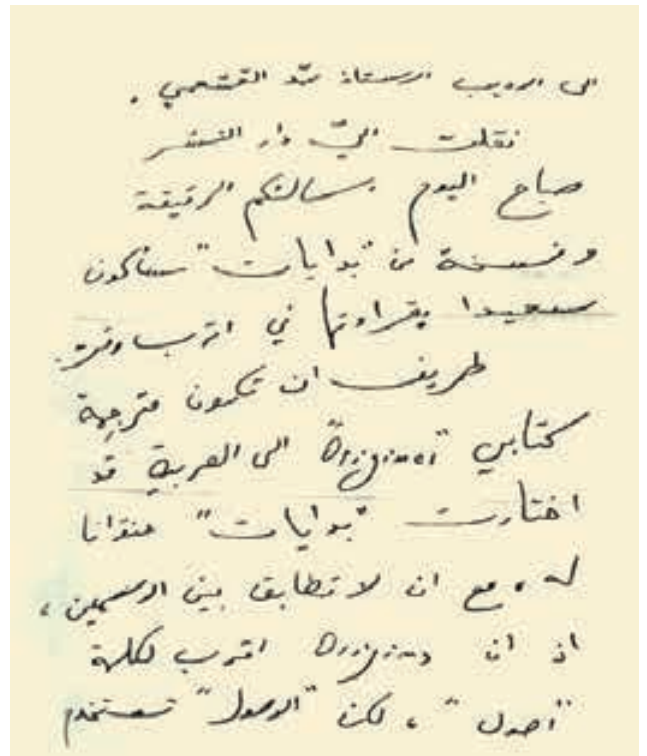 الى الاديب الاستاذ محمد القشعمي .
نقلت اليّ دار النشر
صباح اليوم رسالتكم الرقيقة
ونسخة من "بدايات" سأكون
سعيدا بقراءتها في اقرب وقت.
طريف ان تكون مترجمة
كتابي "Origines" الى العربية قد
اختارت "بدايات" عنوانا
له ، مع ان لا تطابق بين الاسمين ،
اذ ان Origines اقرب لكلمة
"اصول" ، لكن "الاصول" تستخدم